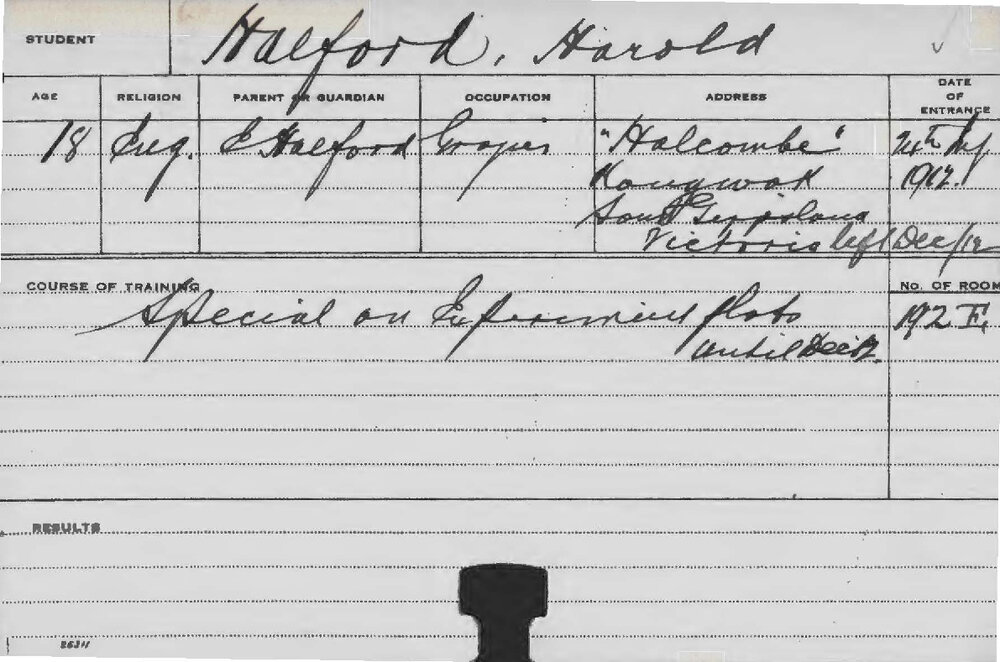 STUDENT Halford, Harold
AGE RELIGION PARENT OR GUARDIAN OCCUPATION ADDRESS DATE OF ENTRANCE
18 Eng. E Halford Grazier "Halcombe" 24th
Kongwak 1912.
South Gippsland
Victoria left Dec/12
COURSE OF TRAINING No. OF ROOM
Special on Experiment plots 192 F.
until Dec 12.
RESULTS